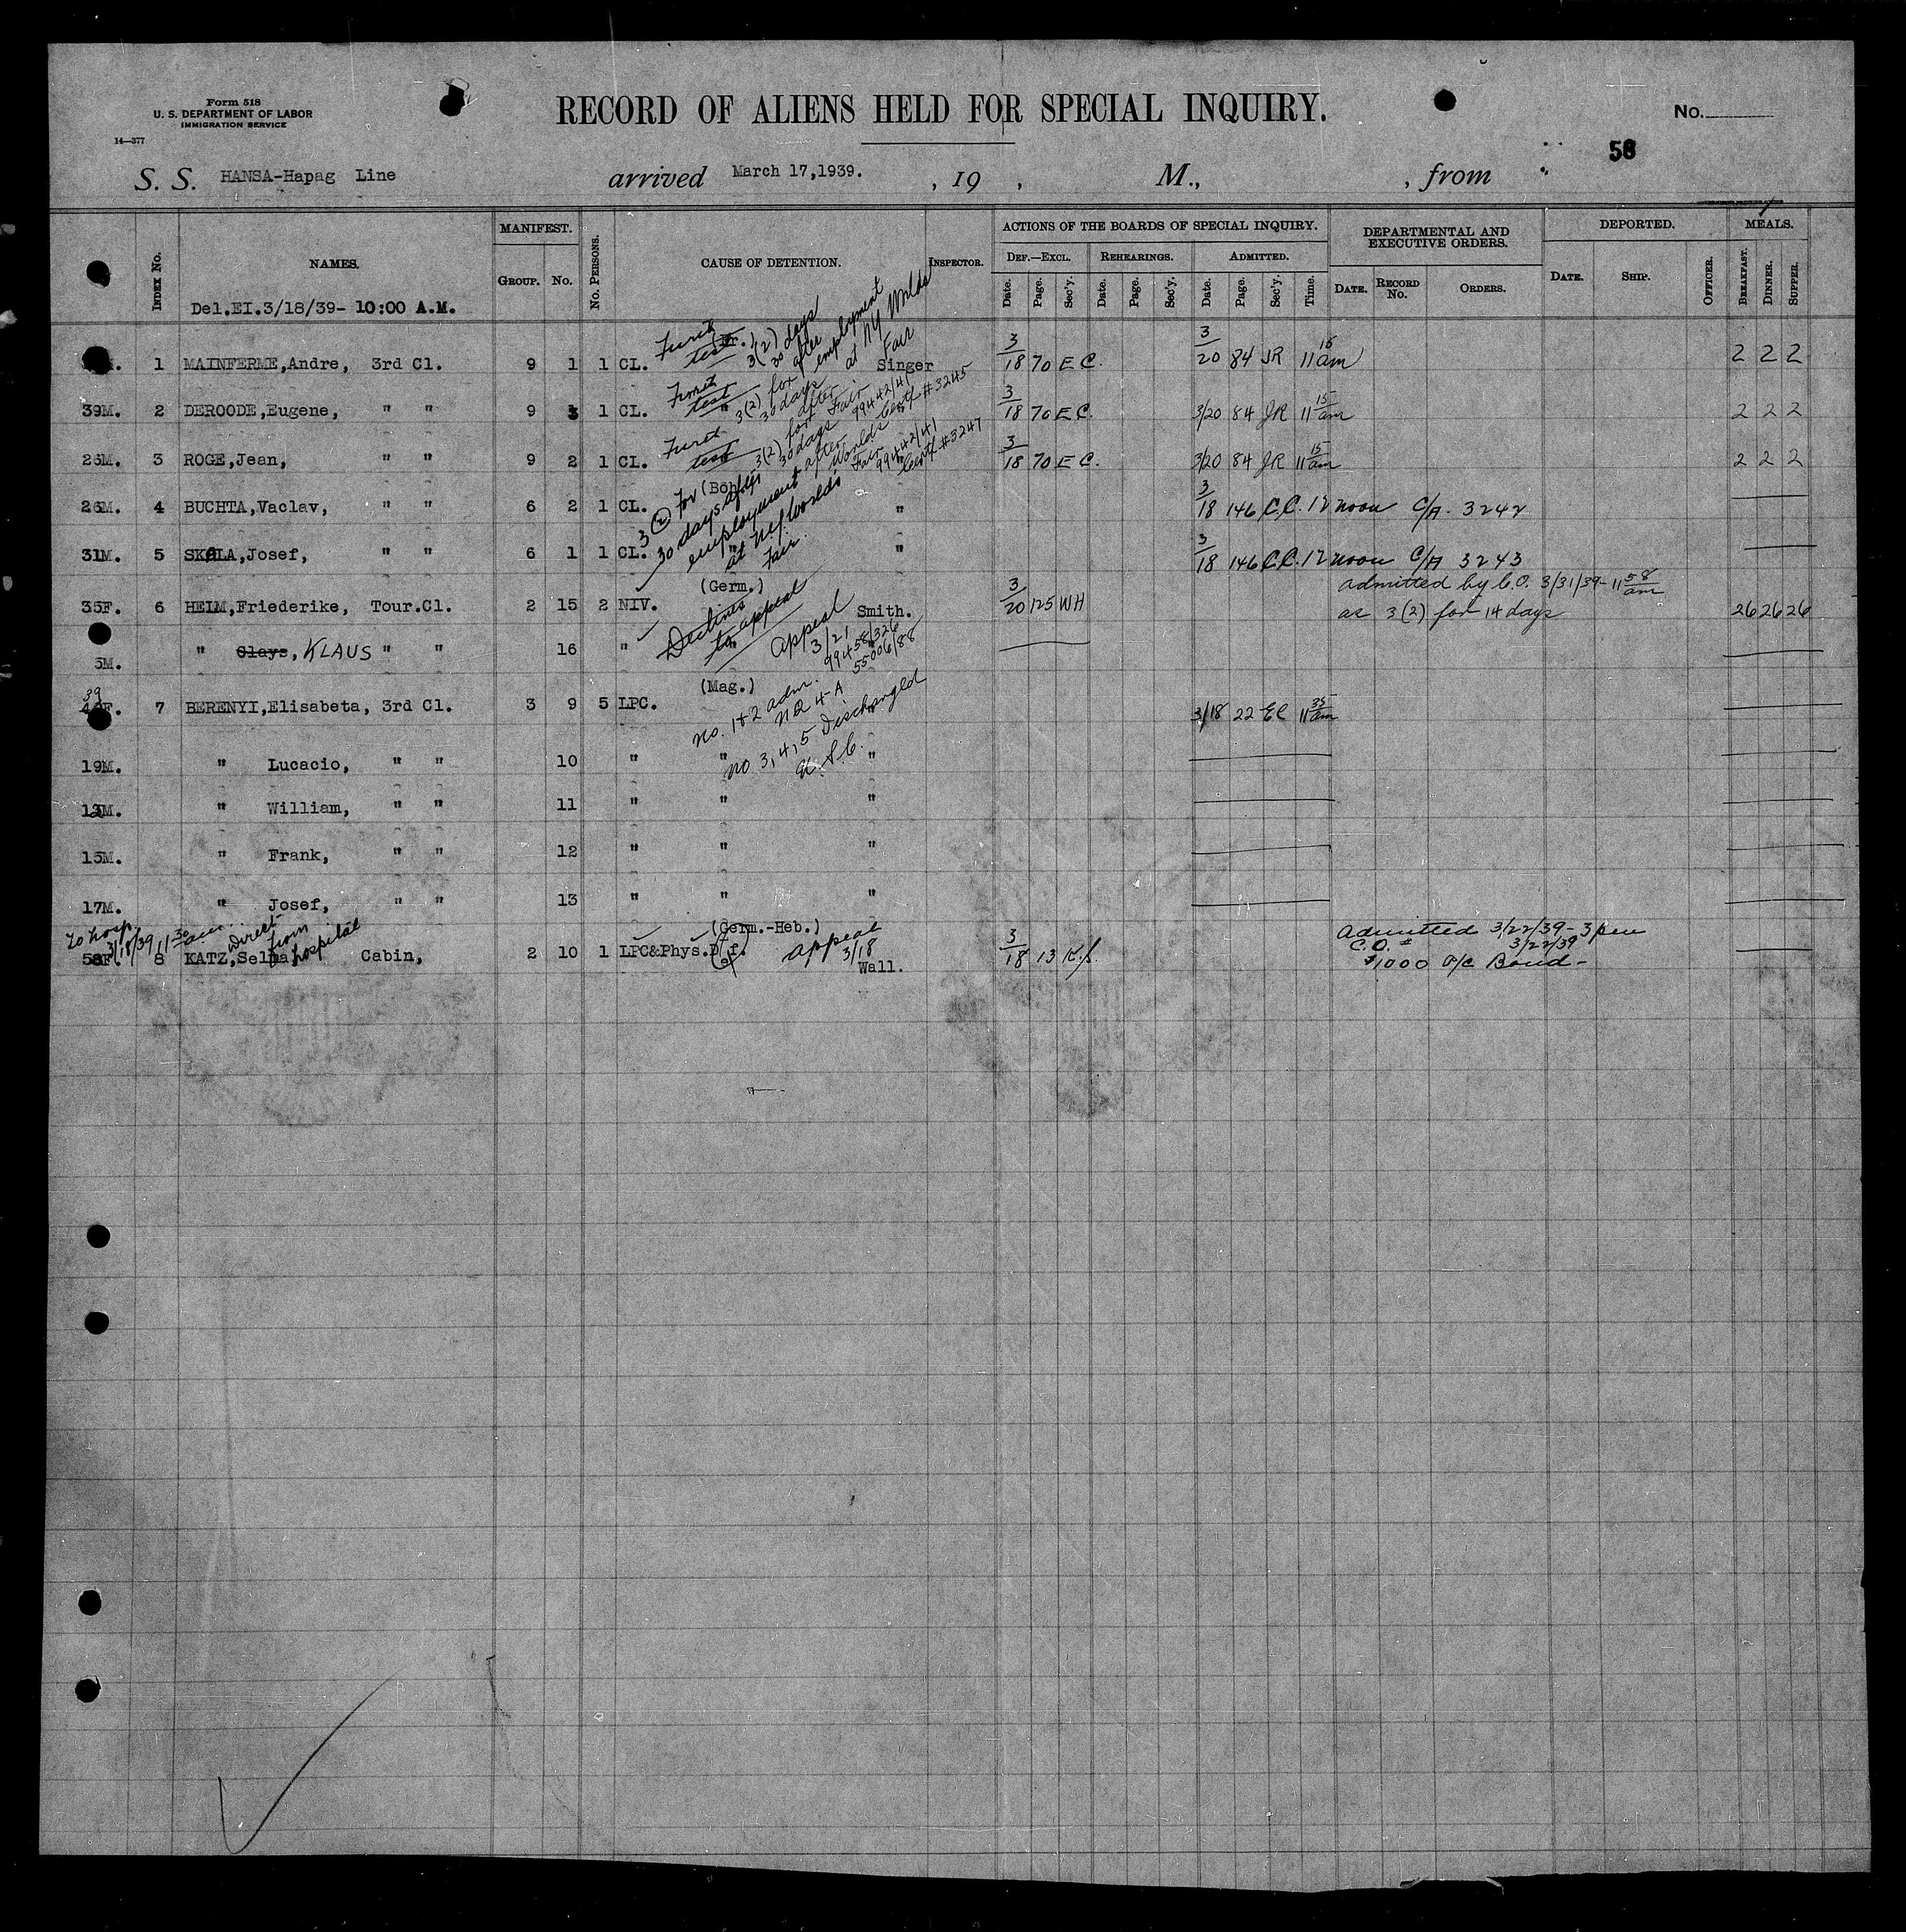 Form 518
U. S. DEPARTMENT OF LABOR
IMMIGRATION SERVICE
14—377
RECORD OF ALIENS HELD FOR SPECIAL INQUIRY.
No.
56
S. S. HANSA-Hapag Line arrived March 17,1939. , 19 , M., , from
INDEX No. NAMES. MANIFEST. GROUP. No. No. PERSONS. CAUSE OF DETENTION. INSPECTOR.
ACTIONS OF THE BOARDS OF SPECIAL INQUIRY. DEF.—EXCL. Date. Page. Sec'y. REHEARINGS. Date. Page. Sec'y. ADMITTED. Date. Page. Sec'y. Time.
DEPARTMENTAL AND EXECUTIVE ORDERS. DATE. RECORD No. ORDERS.
DEPORTED. DATE. SHIP. OFFICER. MEALS. BREAKFAST. DINNER. SUPPER.
Del.EI.3/18/39- 10:00 A.M.
M. 1 MAINFERME,Andre, 3rd Cl. 9 1 1 CL. test 3(2) 30 days after employment at NY Worlds Fair Singer 3/18 70 E C. 3/20 84 JR 11 15 am 2 2 2
39M. 2 DEROODE,Eugene, " " 9 3 1 CL. test " 3(2) for 30 days after Fair 99442/41 Certf #3245 3/18 70 E C. 3/20 84 JR 11 15 am 2 2 2
26M. 3 ROGE,Jean, " " 9 2 1 CL. test 3(2) for 30 days after Worlds Fair 99442/41 Certf #3247 3/18 70 E C. 3/20 84 JR 11 15 am 2 2 2
(Boh.)
26M. 4 BUCHTA,Vaclav, " " 6 2 1 CL. " 3/18 146 C.C. 12 noon C/A. 3242
3(2) for 30 days after employment at NY World's Fair.
31M. 5 SKALA,Josef, " " 6 1 1 CL. " " 3/18 146 C.C. 12 noon C/A 3243
(Germ.)
35F. 6 HEIM,Friederike, Tour.Cl. 2 15 2 NIV. Declines to appeal Appeal 3/21 Smith. 3/20 125 WH admitted by C.O. 3/31/39- 11 58 am as 3(2) for 14 days 26 26 26
5M. " Clays, KLAUS " " 16 " " 99458/326 "
55006/88
(Mag.)
39
F. 7 BERENYI,Elisabeta, 3rd Cl. 3 9 5 LPC. No. 1+2 adm. NQ 4-A " 3/18 22 EC 11 35 am
19M. " Lucacio, " " 10 " " no 3,4,5 Discharged U.S.C. "
M. " William, " " 11 " " "
15M. " Frank, " " 12 " " "
17M. " Josef, " " 13 " " "
To hosp 3/18/39 11 30 am. Direct from hospital
(Germ.-Heb.)
58F. 8 KATZ,Selma, Cabin, 2 10 1 LPC&Phys.Def. appeal 3/18 Wall. 3/18 13 Admitted 3/22/39-3 pm
C.O. # 3/22/39
$1000 Bond-